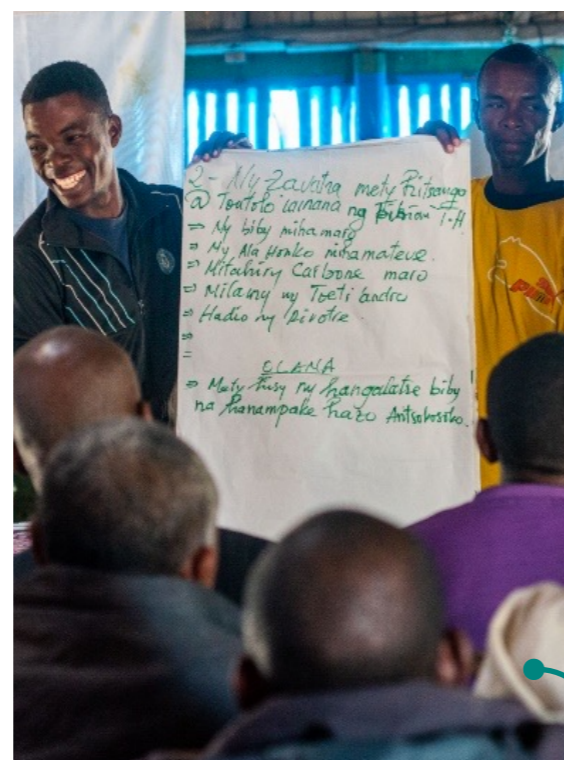 2- Ny Zavatra mety
a) Toutolo iainana ny
⇒ Ny biby mihamaro
⇒ Ny Ala Honko mihamateve.
⇒ Mitahiry Carbone maro
⇒ Milamy ny Toeti andro
⇒ Hadio ny
⇒
=
OLANA
⇒ Mety hisy ny hangalatse biby
na hanampake hazo Antsokosoko.